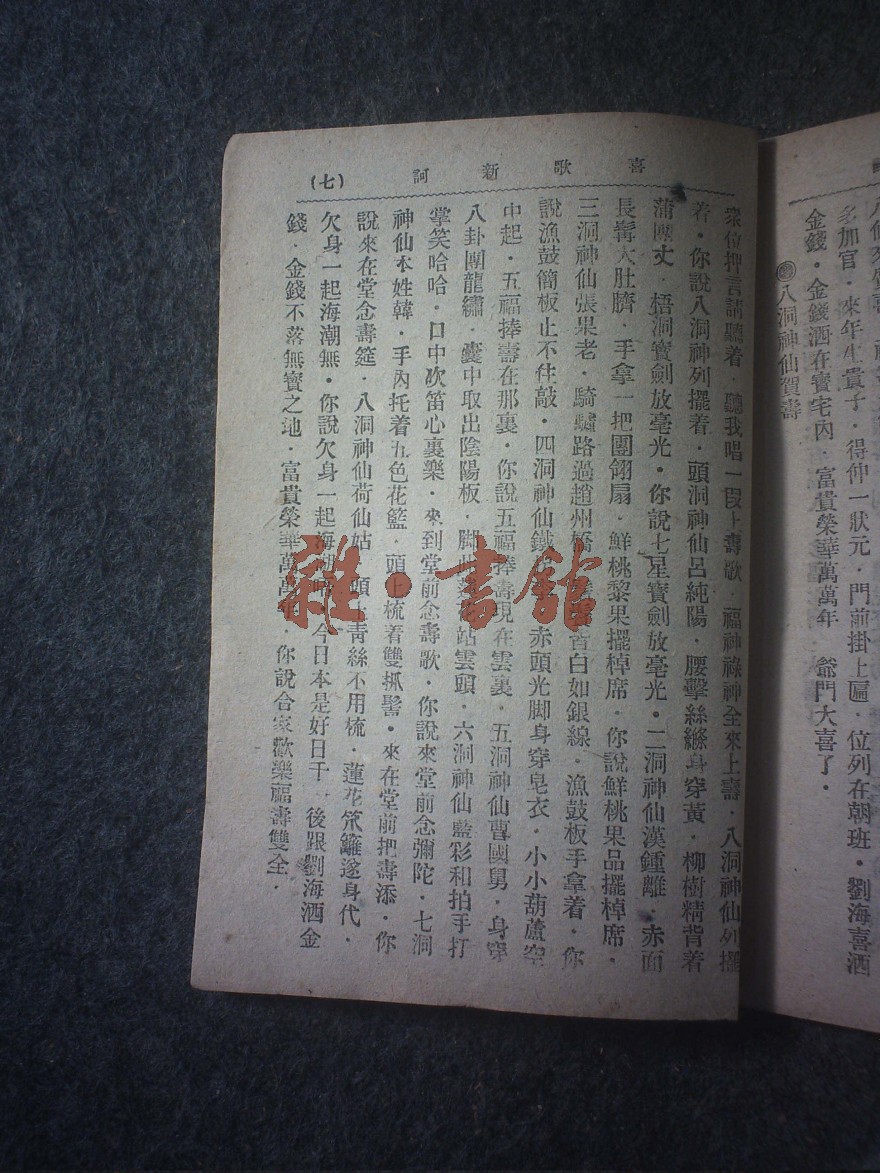 金錢·金錢洒在寶宅內·富貴榮華萬萬年　爺門大喜了·
多加官·來年生貴子·得仲一狀元·門前掛上匾·位列在朝班·劉海喜洒
八洞神仙賀壽
喜歌新詞
(七)
衆位押言請聽着·聽我唱一段上壽歌·福神祿神全來上壽·八洞神仙列擺
着·你說八洞神列擺着·頭洞神仙呂純陽·腰擊絲縧身穿黃·柳樹精背着
蒲團丈·梧洞寶劍放毫光·你說七星寶劍放毫光·二洞神仙漢鍾離·赤面
長髯大肚臍·手拿一把團翎扇·鮮桃黎果擺棹席·你說鮮桃果品擺棹席·
三洞神仙張果老·騎驢路過趙州橋·首白如銀線·漁鼓板手拿着·你
說漁鼓簡板止不住敲·四洞神仙鐵·赤頭光脚身穿皂衣·小小葫蘆空
中起·五福捧壽在那裏·你說五福捧壽現在雲裏·五洞神仙曹國舅·身穿
八卦團龍繡·囊中取出陰陽板·脚·站雲頭·六洞神仙藍彩和拍手打
掌笑哈哈·口中次笛心裏樂·來到堂前念壽歌·你說來堂前念彌陀·七洞
神仙本姓韓·手內托着五色花籃·頭上梳着雙抓髻·來在堂前把壽添·你
說來在堂念壽筵·八洞神仙荷仙姑·頭上青絲不用梳·蓮花笊籬遂身代·
欠身一起海潮無·你說欠身一起海潮·今日本是好日干·後跟劉海洒金
錢·金錢不落無寶之地·富貴榮華萬萬年·你說合家歡樂福壽雙全·